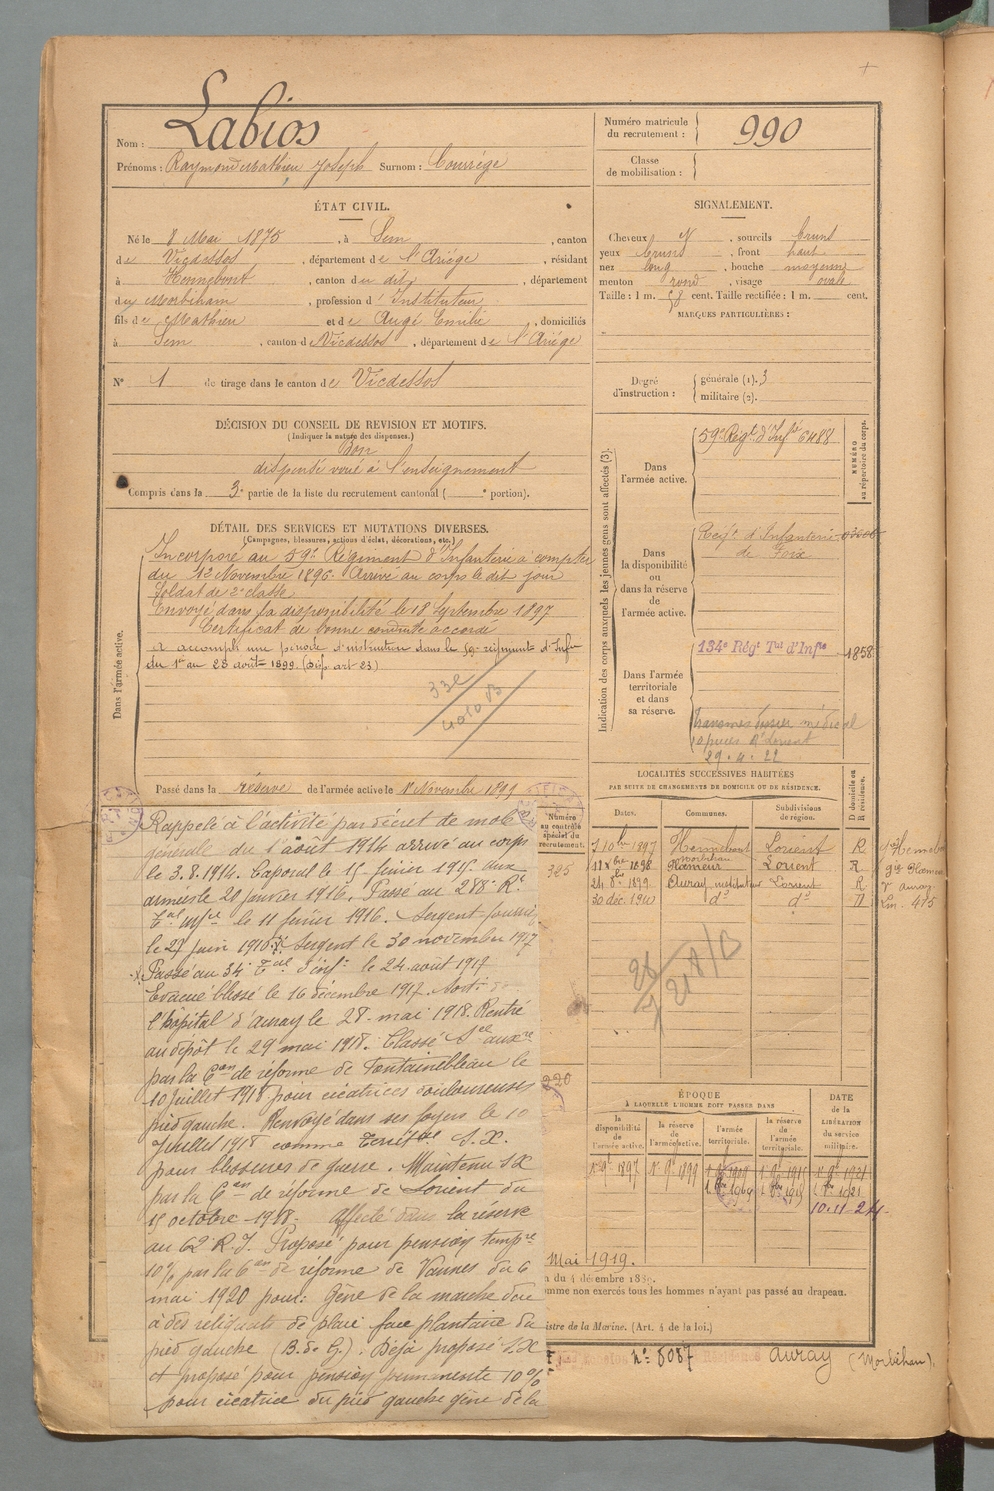 Nom : Labios
Prénoms : Raymond Mathieu Joseph Surnom : Courrége
Numéro matricule du recrutement : 990
Classe de mobilisation :
ÉTAT CIVIL.
Né le 8 Mai 1875, à Sem, canton
de Vicdessos, département de l'Ariége, résidant
à Hennebont, canton du dit, département
du Morbihan, profession d'Instituteur
fils de Mathieu et de Augé Emilie, domiciliés
à Sem, canton de Vicdessos, département de l'Ariége
N° 1 de tirage dans le canton de Vicdessos
SIGNALEMENT.
Cheveux et, sourcils bruns
yeux bruns, front haut
nez long, bouche moyenne
menton rond, visage ovale
Taille : 1 m. 58 cent. Taille rectifiée : 1 m. cent.
MARQUES PARTICULIÈRES :
Degré d'instruction : générale (1). 3
militaire (2).
DÉCISION DU CONSEIL DE REVISION ET MOTIFS.
(Indiquer la nature des dispenses.)
Bon
dispensé voué à l'enseignement
Compris dans la 3e partie de la liste du recrutement cantonal ( e portion).
DÉTAIL DES SERVICES ET MUTATIONS DIVERSES.
(Campagnes, blessures, actions d'éclat, décorations, etc.)
Dans l'armée active.
Incorporé au 59e Régiment d'Infanterie à compter
du 12 Novembre 1896. Arrivé au corps le dit jour
Soldat de 2e classe
Envoyé dans la disponibilité le 18 Septembre 1897
Certificat de bonne conduite accordé
A accompli une période d'instruction dans le 59e régiment d'Infie
du 1er au 28 août 1899. (Disp. art. 23)
Passé dans la réserve de l'armée active le 1er Novembre 1899
Rappelé à l'activité par décret de mobon
générale du 1er août 1914 arrivé au corps
le 3.8.1914. Caporal le 15 février 1915. aux
armées le 20 janvier 1916. Passé au 288e Rt
Tal Infie le 11 février 1916. Sergent-fourrier
le 27 juin 1916. Sergent le 30 novembre 1917
Passé au 34e Tal d'inf. le 24 août 1917
Evacué blessé le 16 décembre 1917. Sorti de
l'hôpital d'Auray le 28 mai 1918. Rentré
au dépôt le 29 mai 1918. Classé Sce auxre
par la Con de réforme de Fontainebleau le
10 juillet 1918 pour cicatrices douloureuses
pied gauche. Renvoyé dans ses foyers le 10
juillet 1918 comme S.X.
pour blessures de guerre. Maintenu SX
par la Con de réforme de Lorient du
15 octobre 1918. Affecté dans la réserve
au 62e R.I. Proposé pour pension tempre
10% par la Con de réforme de Vannes du 6
mai 1920 pour: Gêne de la marche due
à des reliquats de plaie face plantaire du
pied gauche (B. de G.). Déjà proposé SX
et proposé pour pension permanente 10%
pour cicatrice du pied gauche gêne de la
Indication des corps auxquels les jeunes gens sont affectés (3).
NUMÉRO au répertoire du corps.
Dans l'armée active.
59e Régt d'Infie 6488
Dans la disponibilité ou dans la réserve de l'armée active.
Régt d'Infanterie
de Foix
Dans l'armée territoriale et dans sa réserve.
134e Régt Tal d'Infie 1858
transmis dossier médical
Lorient
29.4.22
LOCALITÉS SUCCESSIVES HABITÉES
PAR SUITE DE CHANGEMENTS DE DOMICILE OU DE RÉSIDENCE.
Numéro au contrôle spécial du recrutement.
Dates. Communes. Subdivisions de région. D domicile ou R résidence.
325
1897 Hennebont Lorient R
1898 Ploemeur Morbihan Lorient R
1899 Auray instituteur Lorient R
30 déc. do do
220
ÉPOQUE
À LAQUELLE L'HOMME DOIT PASSER DANS
la disponibilité de l'armée active. la réserve de l'armée active. l'armée territoriale. la réserve de l'armée territoriale.
DATE de la LIBÉRATION du service militaire.
1897 1899 1909 1915 1921
1909 1915 1921
10.11.24
Mai 1919.
n du 4 décembre 1889.
omme non exercés tous les hommes n'ayant pas passé au drapeau.
istre de la Marine. (Art. 4 de la loi.)
n° 8087 Résidence Auray (Morbihan).